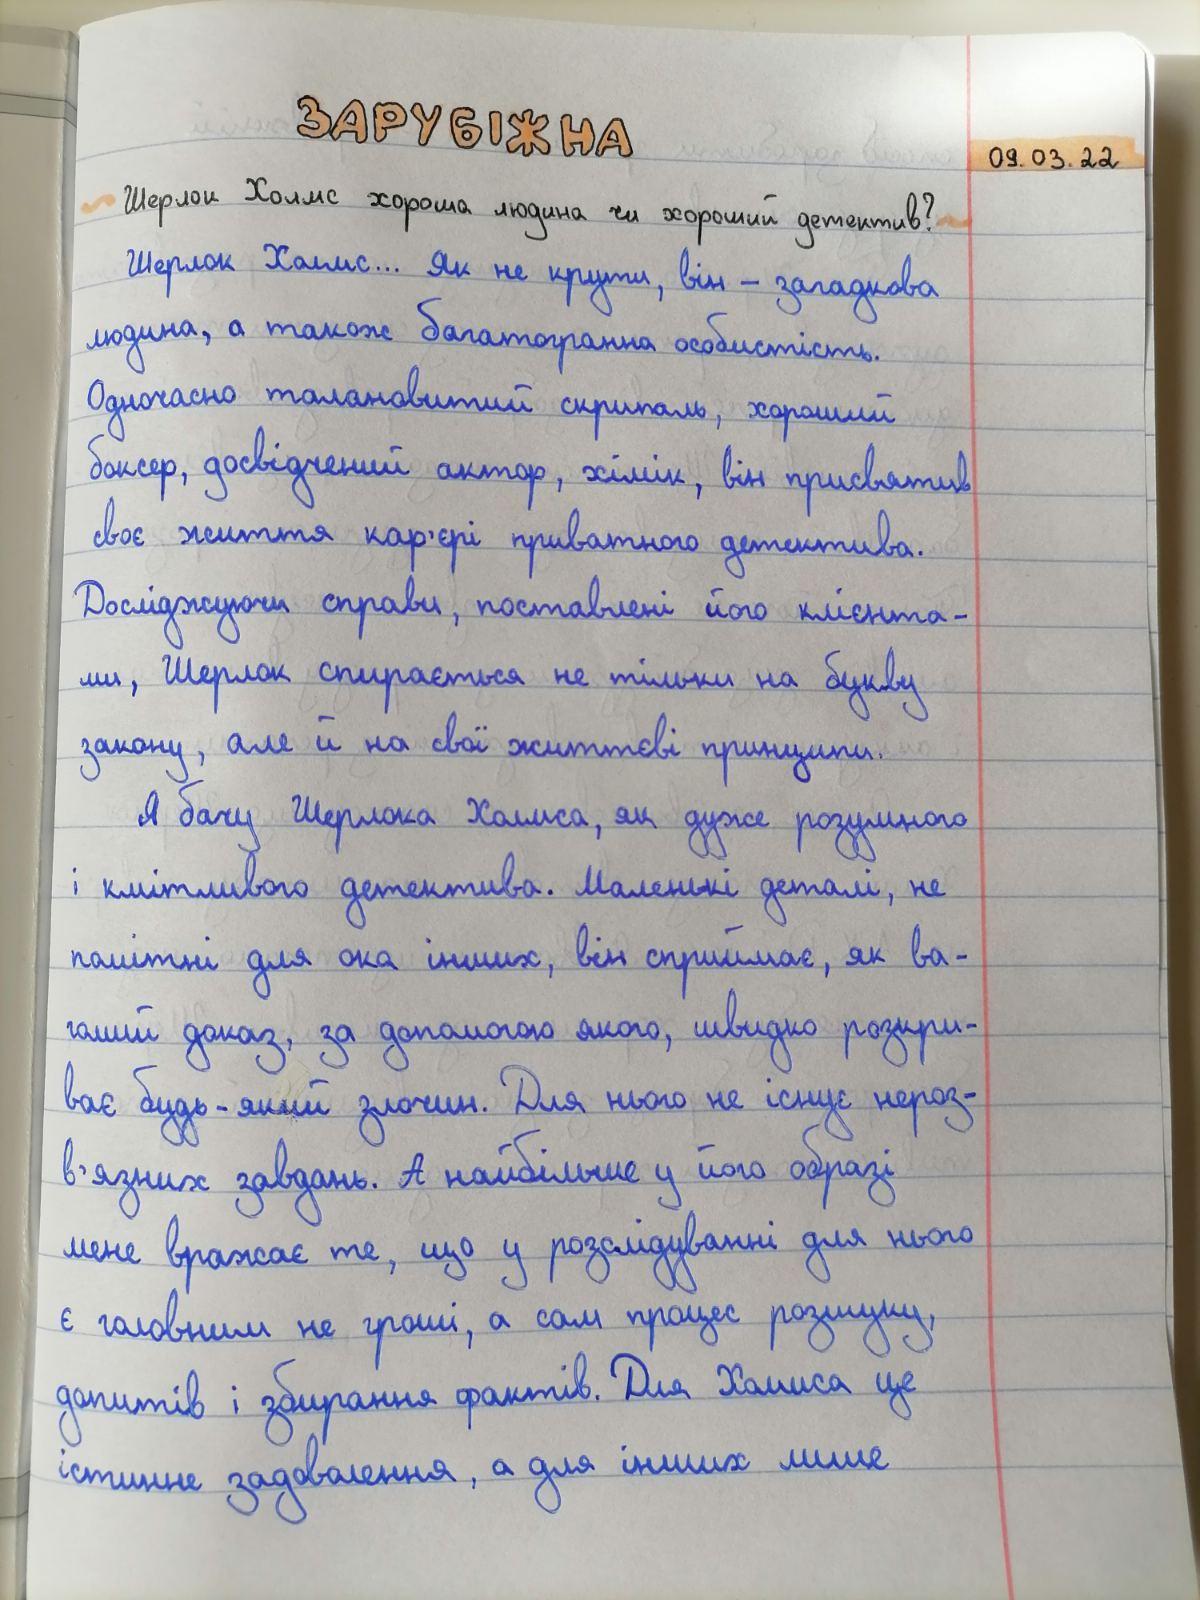 ЗАРУБІЖНА
09.03.22
~ Шерлок Холмс хороша людина чи хороший детектив? ~
Шерлок Холмс... Як не крути, він – загадкова
людина, а також багатогранна особистість.
Одночасно талановитий скрипаль, хороший
боксер, досвідчений актор, хімік, він присвятив
своє життя кар'єрі приватного детектива.
Досліджуючи справи, поставлені його клієнта-
ми, Шерлок спирається не тільки на букву
закону, але й на свої життєві принципи.
Я бачу Шерлока Холмса, як дуже розумного
і кмітливого детектива. Маленькі деталі, не
помітні для ока інших, він сприймає, як ва-
гомий доказ, за допомогою якого, швидко розкри-
ває будь-який злочин. Для нього не існує нероз-
в'язних завдань. А найбільше у його образі
мене вражає те, що у розслідуванні для нього
є головним не гроші, а сам процес розшуку,
допитів і збирання фактів. Для Холмса це
істинне задоволення, а для інших лише